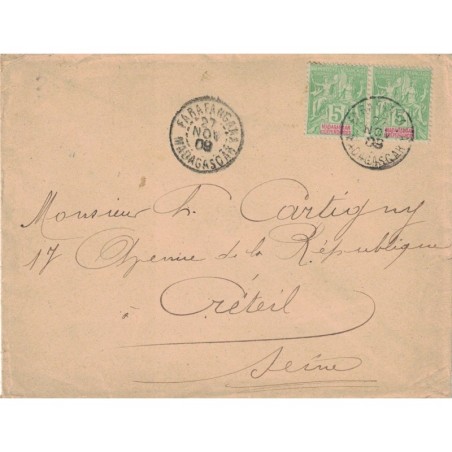 FARAFANGANA
27
NOV
09
MADAGASCAR
5
5
NOV
09
MADAGASCAR
Monsieur h. Cartigny
17 Avenue de la République
à Créteil
Seine